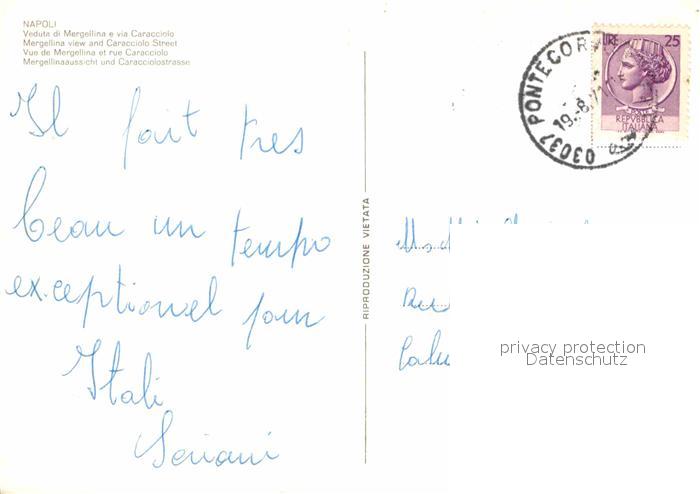 NAPOLI
Veduta di Mergellina e via Caracciolo
Mergellina view and Caracciolo Street
Vue de Mergellina et rue Caracciolo
Mergellinaaussicht und Caracciolostrasse
Il fait tres
beau un tempo
exceptionel pour
Itali
Seriani
RIPRODUZIONE VIETATA
LIRE 25
REPVBBLICA
ITALIANA
03037 PONTECOR
19.-8.71
privacy protection
Datenschutz